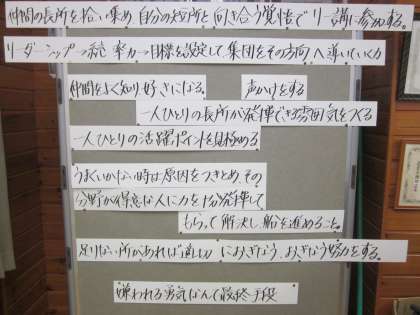 仲間の長所を拾い集め自分の短所と向き合う覚悟でリー講に参加する。
リーダーシップ→統率力→目標を設定して集団をその方向へ導いていく力
仲間をよく知り好きになる。 声かけをする
一人ひとりの長所が発揮できる雰囲気をつくる
一人ひとりの活躍ポイントを見極める
うまくいかない時は原因をつきとめ、その
分野が得意な人に力を十分発揮して
もらって解決し、船を進めること。
足りない所があれば におぎなう、おぎなう努力をする。
嫌われる勇気なんて最終手段